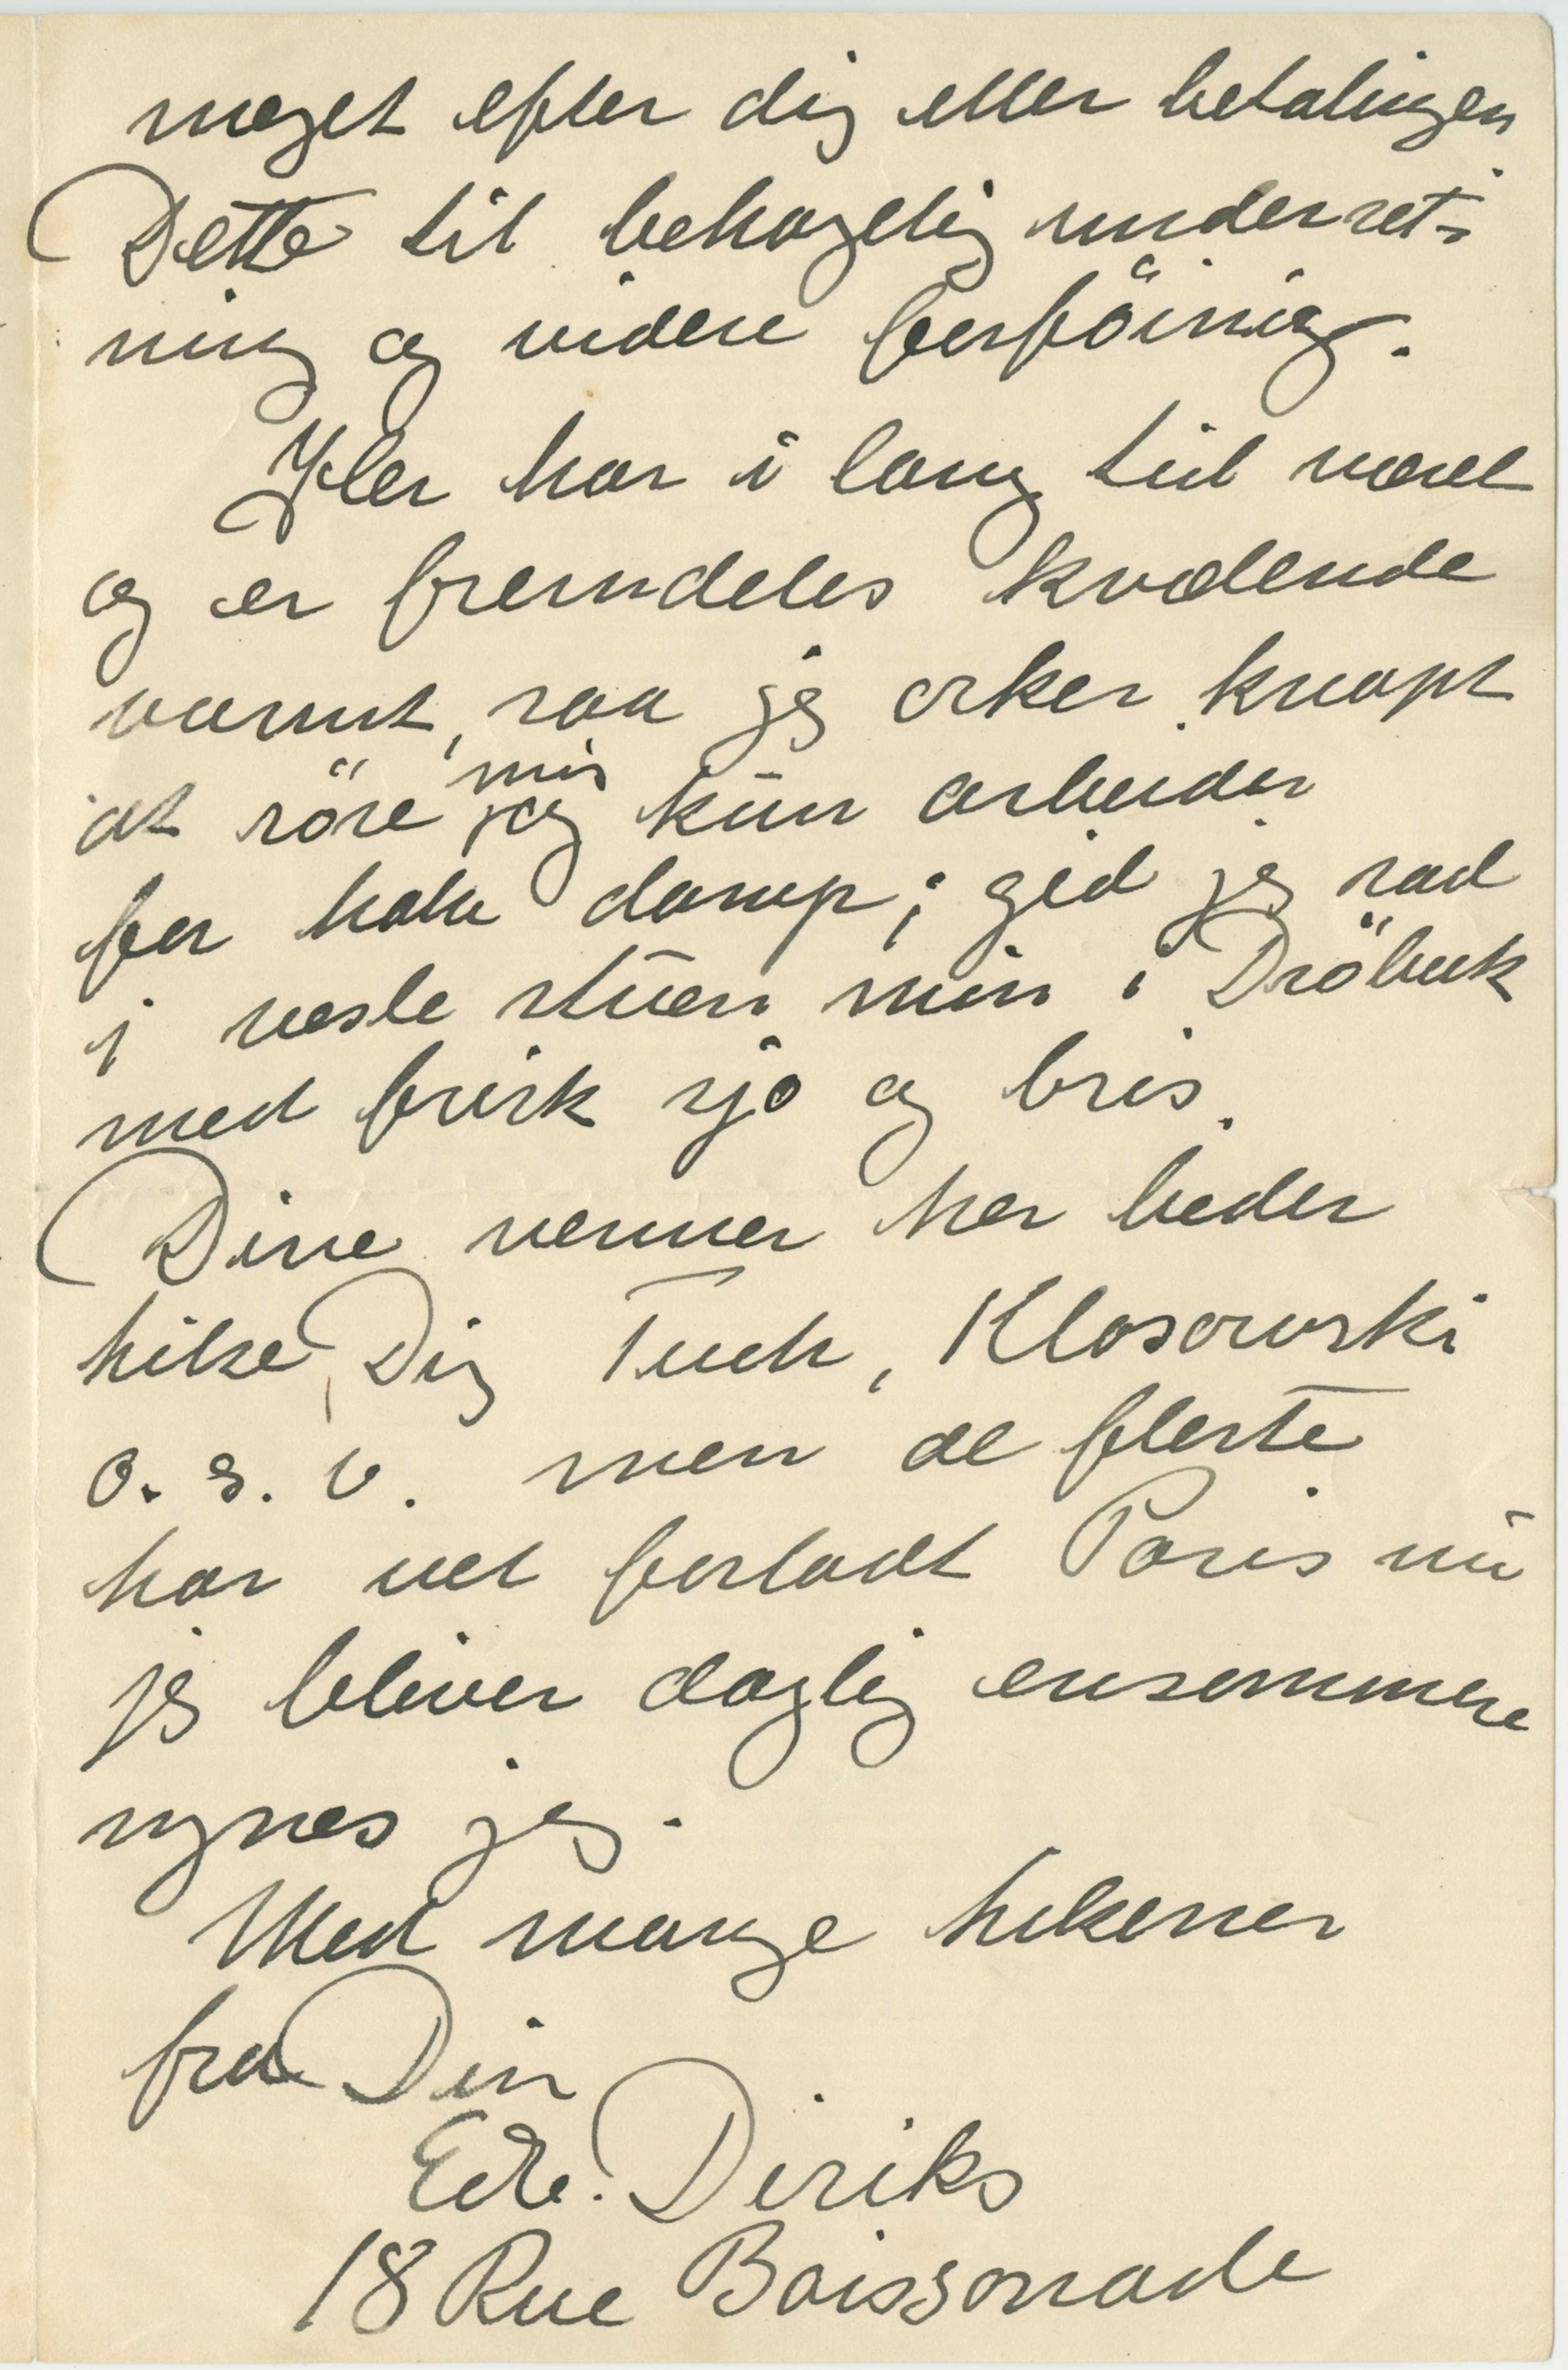 meget efter dig eller betalingen
Dette til behagelig underret-
ning og videre forföining.
Her har i lang tid været
og er fremdeles kvælende
varmt, saa jeg orker knapt
at röre mig og kun arbeider
for halv damp; gid jeg sad
i vesle stuen min i Dröbak
med frisk sjö og bris.
Dine venner her beder
hilse Dig Tuch, Klosowski
o. s. v. men de fleste
har vel forladt Paris nu
jeg bliver daglig ensommere
synes jeg.
Med mange hilsener
fra Din
Edv. Diriks
18 Rue Boissonade